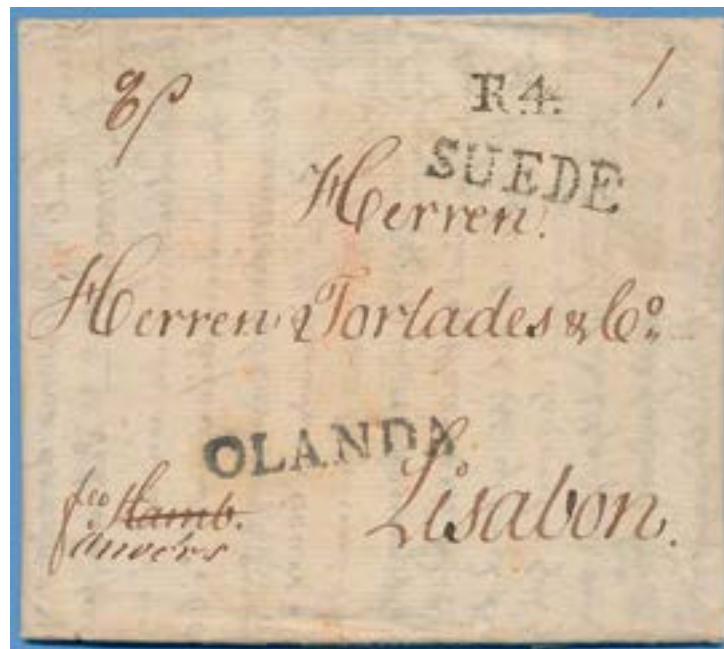 R.4. 1.
SUEDE
Herren
Herren Torlades & Co.
OLANDA
fco Hamb.
Anvers
Lisabon.